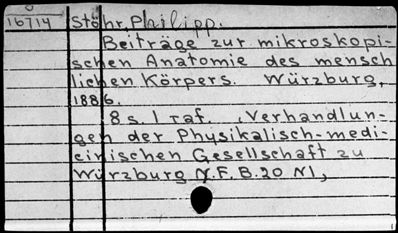 16714 Stöhr, Philipp.
Beiträge zur mikroskopi-
schen Anatomie des mensch
lichen Körpers. Würzburg,
1886.
8 s. 1 Taf. , Verhandlun-
gen der Physikalisch-medi-
cinischen Gesellschaft zu
Würzburg N.F. B.20 N1,